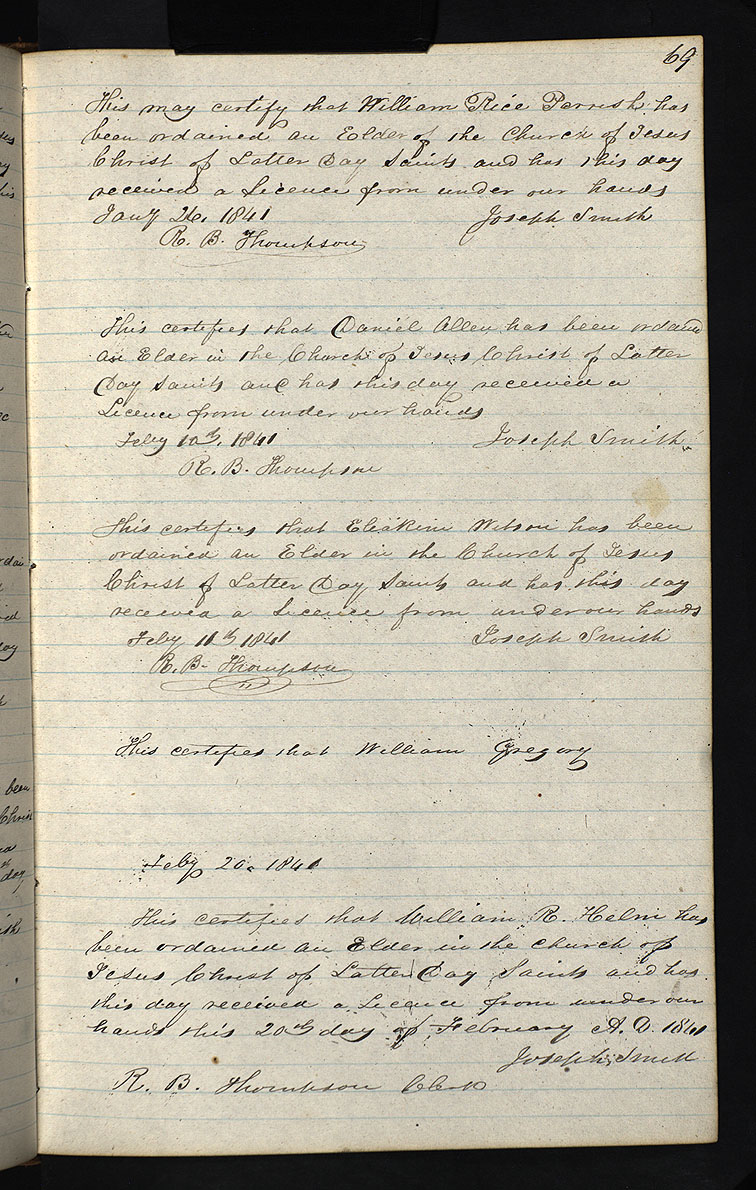 69
This may certify that William Rice Parrish has
been ordained an Elder of the Church of Jesus
Christ of Latter Day Saints and has this day
received a Licence from under our hands
Jany 26, 1841 Joseph Smith
R. B. Thompson
This certifies that Daniel Allen has been ordaind
an Elder in the Church of Jesus Christ of Latter
Day Saints and has this day received a
Licence from under our hands
Feby 10th, 1841 Joseph Smith
R. B. Thompson
This certifies that Eliakim Wilson has been
ordained an Elder in the Church of Jesus
Christ of Latter Day Saints and has this day
received a Licence from under our hands
Feby 11th 1841 Joseph Smith
R. B. Thompson
This certifies that William Gregory
Feby 20. 1841
This certifies that William R. Helm has
been ordained an Elder in the church of
Jesus Christ of Latter Day Saints and has
this day received a Licence from under our
hands this 20th day of February A.D. 1841
Joseph Smith
R. B. Thompson Clerk